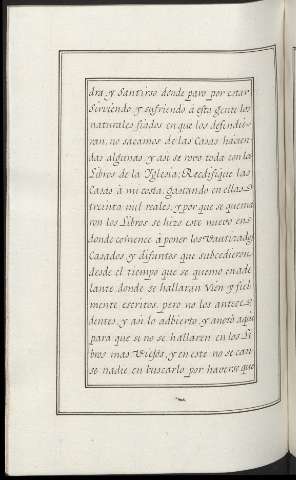 dra, y Santirso donde paro por estar
Sirviendo, y sufriendo á esta gente los
naturales, fiados en que los defendie-
ran, no sacamos de las Casas hacien-
das algunas, y asi se rovo toda con los
Libros de la Yglesia; Reedifique las
Casas á mi costa, gastando en ellas
treinta mil reales; y por que se quema
ron los Libros se hizo este nuevo en
donde comence á poner los Vautizados
Casados y difuntos que subcedieron,
desde el tiempo que se quemo en ade
lante, donde se hallaran Vien y fiel
mente escritos, pero no los antece-
dentes, y asi lo adbierto y anoto aqui
para que si no se hallaren en los Li
bros mas Viejos, y en este no se can
se nadie en buscarlo por haverse que